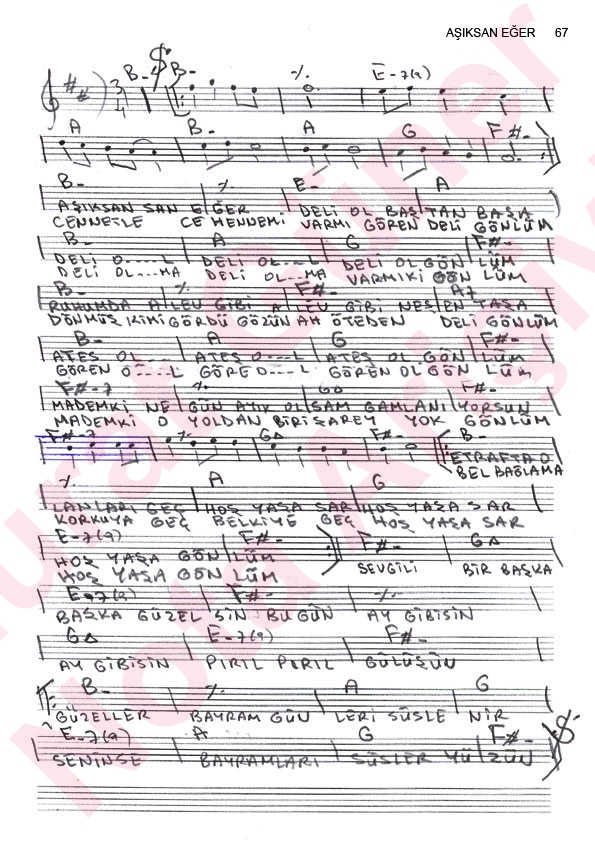 AŞIKSAN EĞER 67
3/4 B- B- ٪ E-7(9)
A B- A G F#-
B- ٪ E- A
AŞIKSAN SAN EĞER DELİ OL BAŞ TAN BAŞA
CENNETLE CEHENNEMİ VARMI GÖREN DELİ GÖNLÜM
B- A G F#-
DELİ O----L DELİ OL---- DELİ OL GÖN LÜM
DELİ OL---MA DELİ OL---MA VARMIKİ GÖN LÜM
B- ٪ F#- A7
RUHUMDA ALEV GİBİ ALEV GİBİ NEŞ EN TAŞA
DÖNMÜŞ KİMİ GÖRDÜ GÖZÜN AH ÖTEDEN DELİ GÖNLÜM
B- A G F#-
ATEŞ OL---- ATEŞ O----L ATEŞ OL GÖN LÜM
GÖREN O----L GÖRE O----L GÖREN OL GÖN LÜM
F#-7 ٪ G△ F#-
MADEMKİ NE GÜN AYIK OL SAM GAMLANI YORSUN
MADEMKİ O YOLDAN BİRİ SAREY YOK GÖNLÜM
F#-7 ٪ G△ F#- B-
ETRAFTA O
BEL BAĞLAMA
٪ A G
LANLARI GEÇ HOŞ YAŞA SAR HOŞ YAŞA SAR
KORKUYA GEÇ BELKİYE GEÇ HOŞ YAŞA SAR
E-7(9) F#- F#- G△
HOŞ YAŞA GÖN LÜM SEVGİLİ BİR BAŞKA
HOŞ YAŞA GÖN LÜM
E-7(9) F#- ٪
BAŞKA GÜZEL SİN BUGÜN AY GİBİSİN
G△ E-7(9) F#-
AY GİBİSİN PIRIL PIRIL GÜLÜŞÜN
B- ٪ A G
GÜZELLER BAYRAM GÜN LERİ SÜSLE NİR
E-7(9) A G F#-
SENİNSE BAYRAMLARI SÜSLER YÜ ZÜN
Nota Arşivi